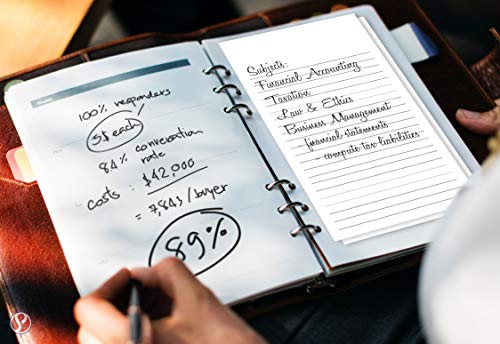 Weekly
100% responders
5$ each
84% conversation
rate
costs: $42,000
= 7,843/buyer
89%
Subjects:
Financial Accounting
Taxation
Law & Ethics
Business Management
financial statements
- compute tax liabilities -